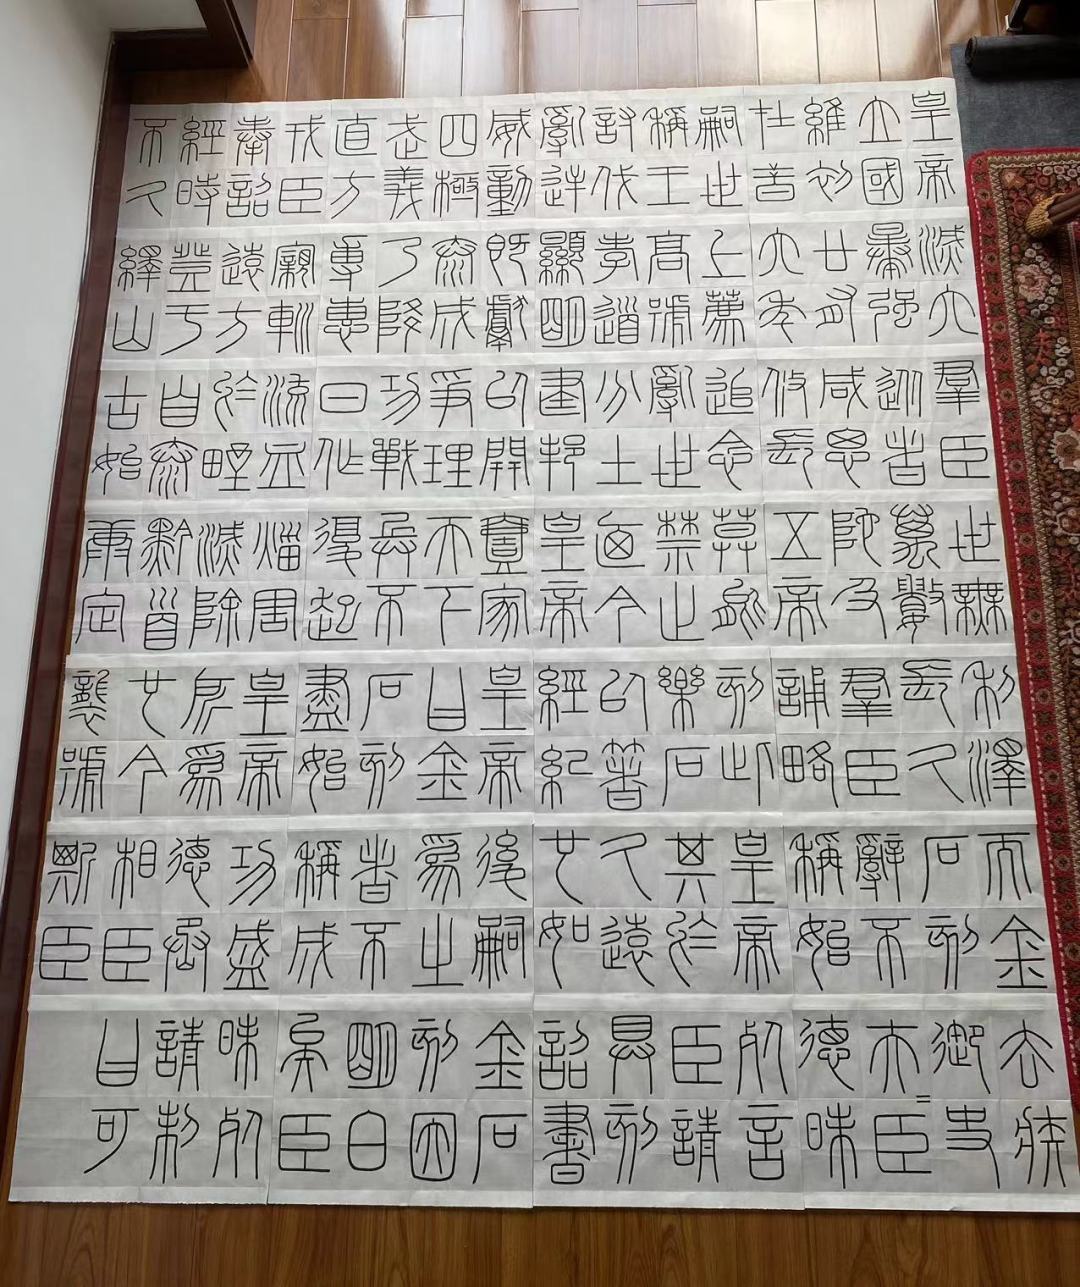 皇帝立國維初在昔嗣世稱王討伐亂逆威動四極武義直方戎臣奉詔經時不久
滅六暴强廿有六年上薦高號孝道顯明既獻泰成乃降專惠寴巡遠方登于繹山
羣臣從者咸思攸長追念亂世分土建邦以開爭理功戰日作流血於野自泰古始
世無萬數陀及五帝莫能禁止迺今皇帝壹家天下兵不復起災害滅除黔首康定
利澤長久羣臣誦略刻此樂石以著經紀皇帝曰金石刻盡始皇帝所為也今襲號
而金石刻辭不稱始皇帝其於久遠也如後嗣為之者不稱成功盛德丞相臣斯臣
去疾御史夫=臣德昧死言臣請具刻詔書金石刻因明白矣臣昧死請制曰可